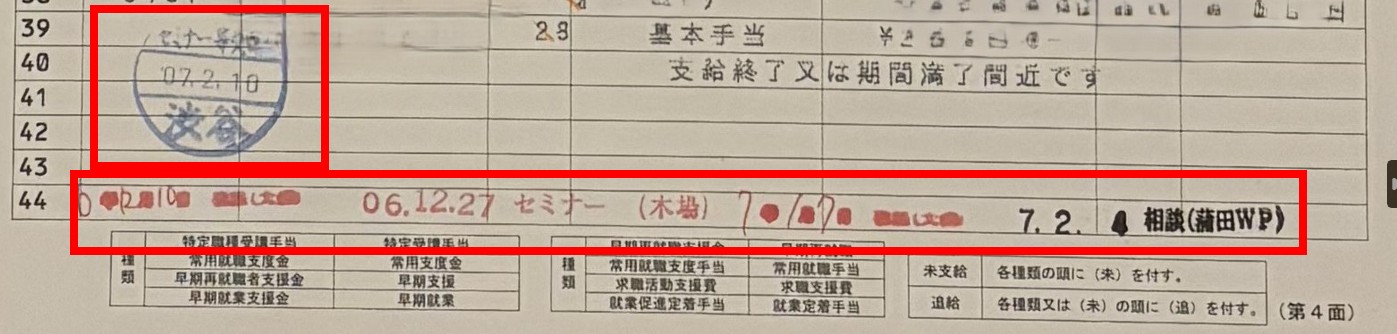 39
セミナー等
23
基本手当
40
'07.2.10
支給終了又は期間満了間近です
41
渋谷
42
43
44
06.12.27 セミナー (木場)
7.2. 4 相談(蒲田WP)
種類
特定職種受講手当
特定受講手当
常用就職支度金
常用支度金
早期再就職者支援金
早期支援
早期就業支援金
早期就業
種類
早期再就職支援金
早期再就職
常用就職支度手当
常用就職手当
求職活動支援費
求職支援費
就業促進定着手当
就業定着手当
未支給
各種類の頭に(未)を付す。
追給
各種類又は(未)の頭に(追)を付す。
(第4面)